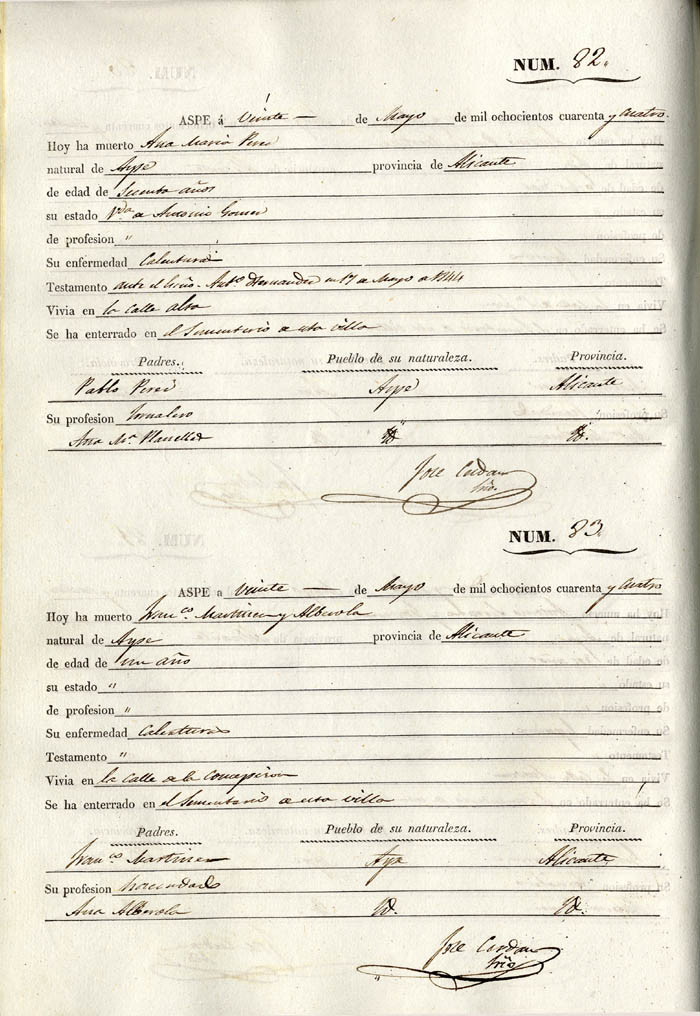 NUM. 82.
ASPE á Veinte de Mayo de mil ochocientos cuarenta y cuatro.
Hoy ha muerto Ana Maria Perez
natural de Aspe provincia de Alicante
de edad de años
su estado Vda de Antonio Gomez
de profesion "
Su enfermedad Calentura
Testamento ante el Antº Hernandez en 17 de Mayo de 1844
Vivia en la calle alta
Se ha enterrado en el Sementerio de esta villa
Padres. Pueblo de su naturaleza. Provincia.
Pablo Perez Aspe Alicante
Su profesion Jornalero
Ana Mª Planelles Yd. Yd.
Jose Cerdan
NUM. 83.
ASPE a Veinte de Mayo de mil ochocientos cuarenta y cuatro
Hoy ha muerto Franco. Martinez y Alberola
natural de Aspe provincia de Alicante
de edad de un año
su estado "
de profesion "
Su enfermedad Calenturas
Testamento "
Vivia en la Calle de la Concepcion
Se ha enterrado en el Sementerio de esta villa
Padres. Pueblo de su naturaleza. Provincia.
Franco Martinez Aspe Alicante
Su profesion hacendado
Ana Alberola Yd. Yd.
Jose Cerdan